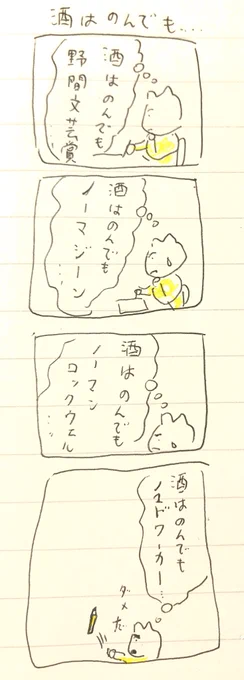 酒はのんでも....
酒はのんでも
野間文芸賞
...
酒はのんでも
ノーマジーン
...
酒はのんでも
ノーマン
ロックウェル
...
酒はのんでも
ノマドワーカー...
ダメだ